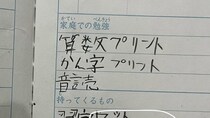 かてい べんきょう
家庭での勉強
算数プリント
かん字プリント
音読
待ってくるもの